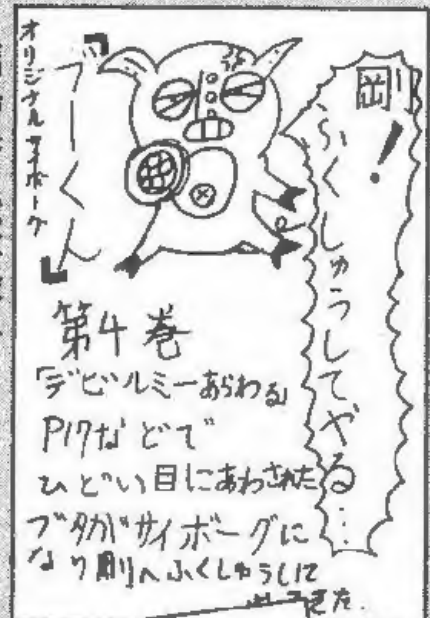 剛！
ふくしゅうしてやる…
オリジナルサイボーグ
「ブーくん」
第4巻
「デビルミーあらわる」
P17などで
ひどい目にあわされた
ブタがサイボーグに
なり剛へふくしゅうして
きた.